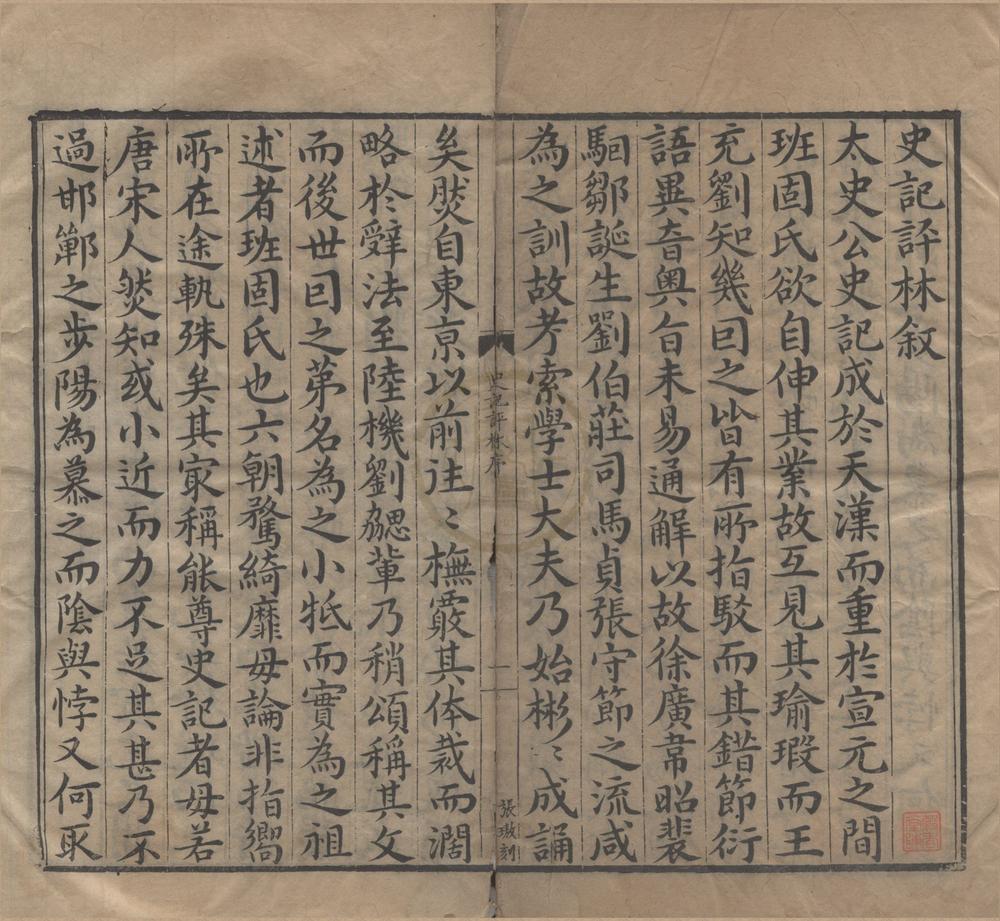 史記評林叙
太史公史記成於天漢而重於宣元之間
班固氏欲自伸其業故互見其瑜瑕而王
充劉知幾囙之皆有所指駁而其錯節衍
語異音奥旨未易通解以故徐廣韋昭裴
駰鄒誕生劉伯莊司馬貞張守節之流咸
為之訓故考索學士大夫乃始彬〻成誦
史記評林序
一
張璈刻
矣然自東京以前往〻橅霰其体裁而濶
略於辤法至陸機劉勰輩乃稍頌稱其文
而後世囙之苐名為之小牴而實為之祖
述者班固氏也六朝騖綺靡毋論非指嚮
所在途軌殊矣其冣稱能尊史記者毋若
唐宋人然知或小近而力不足其甚乃不
過邯鄲之步陽為慕之而陰與悖又何取